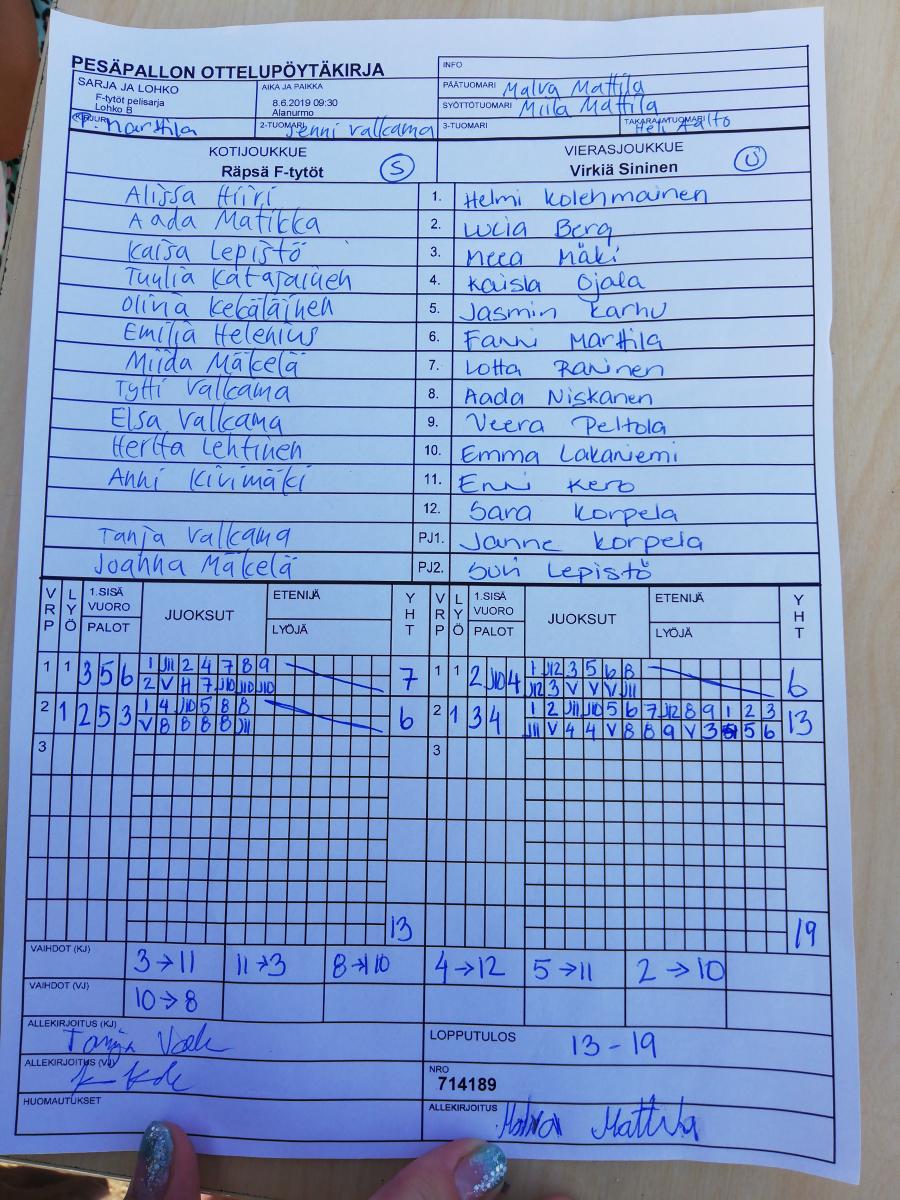 PESÄPALLON OTTELUPÖYTÄKIRJA
INFO
SARJA JA LOHKO
F-tytöt pelisarja
Lohko B
AIKA JA PAIKKA
8.6.2019 09:30
Alanurmo
PÄÄTUOMARI Malva Mattila
SYÖTTÖTUOMARI Miila Mattila
KIRJURI P. Marttila
2-TUOMARI Jenni Valkama
3-TUOMARI
TAKARAJATUOMARI Heli Aalto
KOTIJOUKKUE
Räpsä F-tytöt S
VIERASJOUKKUE
Virkiä Sininen U
Alissa Hiiri 1. Helmi Kolehmainen
Aada Matikka 2. Lucia Berg
Kaisa Lepistö 3. Meea Mäki
Tuulia Katajainen 4. Kaisla Ojala
Olivia Kekäläinen 5. Jasmin Karhu
Emilia Helenius 6. Fanni Marttila
Miida Mäkelä 7. Lotta Raninen
Tytti Valkama 8. Aada Niskanen
Elsa Valkama 9. Veera Peltola
Hertta Lehtinen 10. Emma Lakaniemi
Anni Kivimäki 11. Enni Kero
12. Sara Korpela
Tanja Valkama PJ1. Janne Korpela
Joanna Mäkelä PJ2. Suvi Lepistö
VRP LYÖ 1.SISÄ VUORO PALOT JUOKSUT ETENIJÄ LYÖJÄ YHT VRP LYÖ 1.SISÄ VUORO PALOT JUOKSUT ETENIJÄ LYÖJÄ YHT
1 1 3 5 6 1 J11 2 4 7 8 9 7 1 1 2 J10 4 1 J12 3 5 6 8 6
2 V H 7 J10 J10 J10 J12 3 V V V J11
2 1 2 5 3 1 4 J10 5 8 8 6 2 1 3 4 1 2 J11 J10 5 6 7 J12 8 9 1 2 3 13
V 8 8 8 8 J11 J11 V 4 4 V 8 8 9 V 3 5 6
3 3
13 19
VAIHDOT (KJ) 3→11 11→3 8→10 4→12 5→11 2→10
VAIHDOT (VJ) 10→8
ALLEKIRJOITUS (KJ) Tanja Valk
LOPPUTULOS 13-19
ALLEKIRJOITUS (VJ)
NRO
714189
HUOMAUTUKSET
ALLEKIRJOITUS Malva Mattila